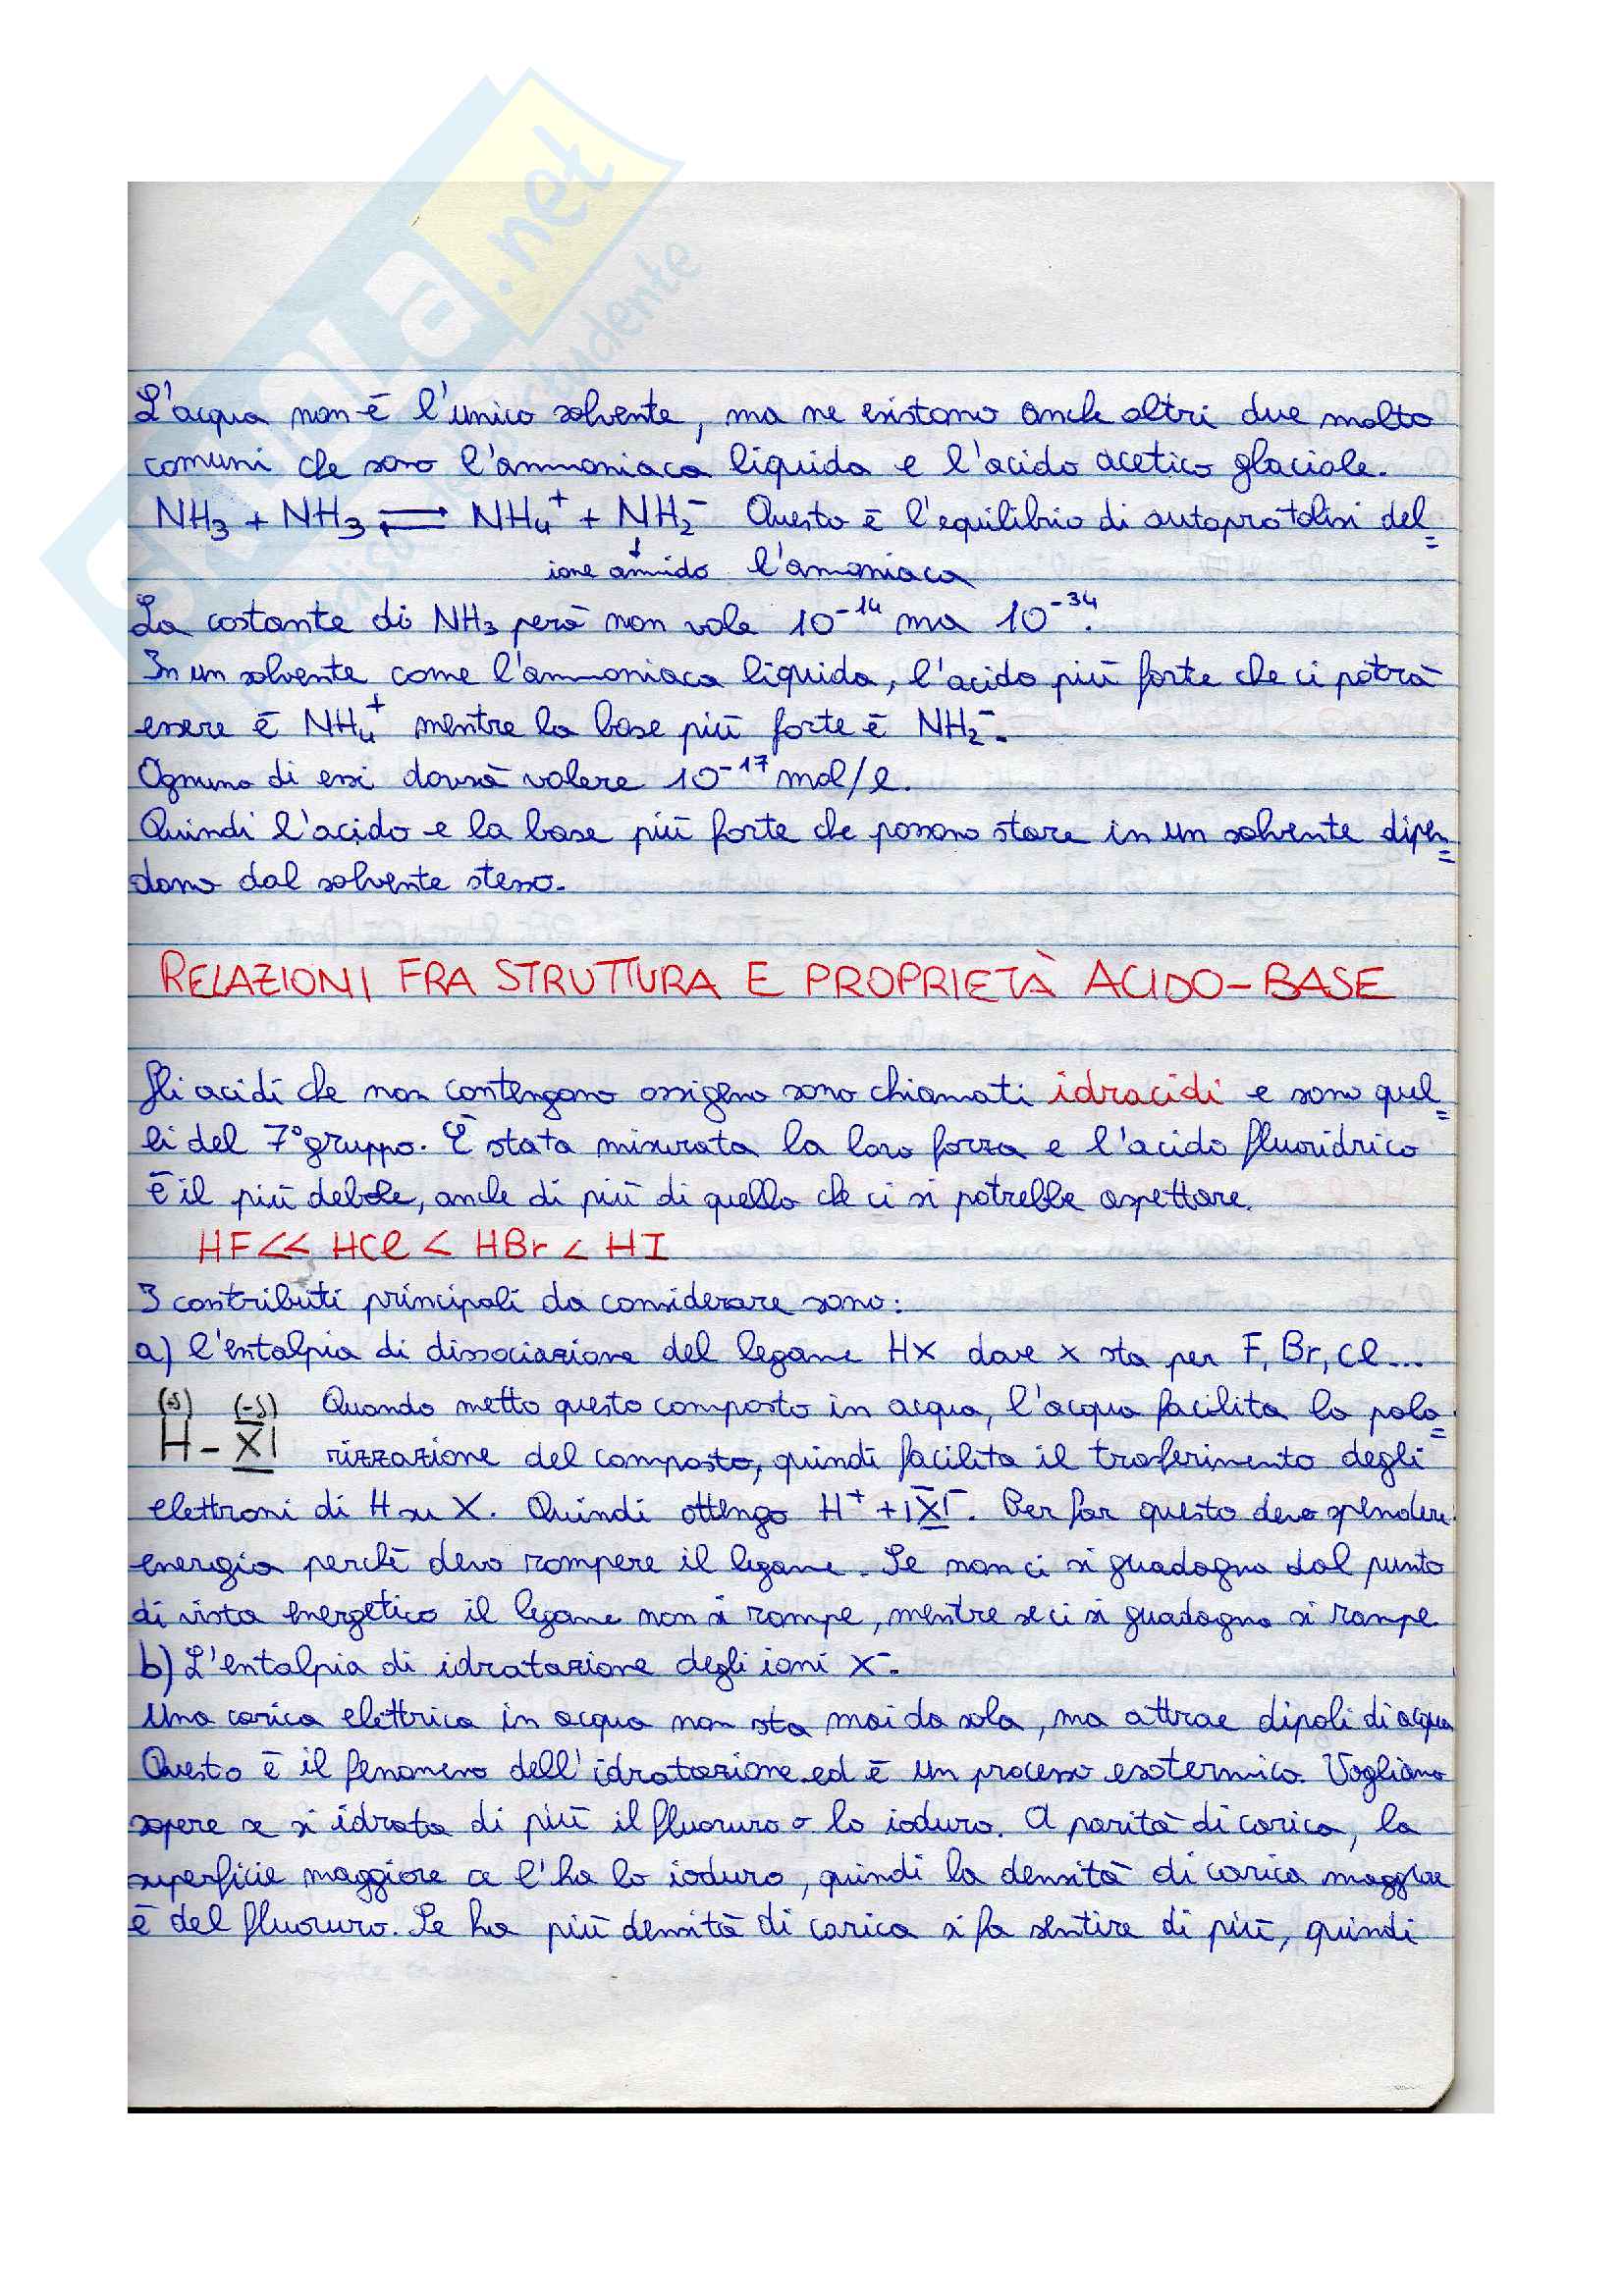 L'acqua non è l'unico solvente, ma ne esistono anche altri due molto
comuni che sono l'ammoniaca liquida e l'acido acetico glaciale.
NH₃ + NH₃ ⇌ NH₄⁺ + NH₂⁻ Questo è l'equilibrio di autoprotolisi del=
↓
ione amido l'amoniaca
La costante di NH₃ però non vale 10⁻¹⁴ ma 10⁻³⁴.
In un solvente come l'ammoniaca liquida, l'acido più forte che ci potrà
essere è NH₄⁺ mentre la base più forte è NH₂⁻.
Ognuno di essi dovrà valere 10⁻¹⁷ mol/l.
Quindi l'acido e la base più forte che possono stare in un solvente dipen=
dono dal solvente stesso.
RELAZIONI FRA STRUTTURA E PROPRIETÀ ACIDO-BASE
Gli acidi che non contengono ossigeno sono chiamati idracidi e sono quel=
li del 7° gruppo. È stata misurata la loro forza e l'acido fluoridrico
è il più debole, anche di più di quello che ci si potrebbe aspettare.
HF << HCl < HBr < HI
3 contributi principali da considerare sono:
a) l'entalpia di dissociazione del legame HX dove x sta per F, Br, Cl...
(δ) (-δ) Quando metto questo composto in acqua, l'acqua facilita la pola=
H - X| rizzazione del composto, quindi facilita il trasferimento degli
elettroni di H su X. Quindi ottengo H⁺ + |X|⁻. Per far questo devo spendere
energia perchè devo rompere il legame. Se non ci si guadagna dal punto
di vista energetico il legame non si rompe, mentre se ci si guadagna si rompe.
b) L'entalpia di idratazione degli ioni X⁻.
Una carica elettrica in acqua non sta mai da sola, ma attrae dipoli di acqua
Questo è il fenomeno dell'idratazione ed è un processo esotermico. Vogliamo
sapere se si idrata di più il fluoruro o lo ioduro. A parità di carica, la
superficie maggiore ce l'ha lo ioduro, quindi la densità di carica maggiore
è del fluoruro. Se ha più densità di carica si fa sentire di più, quindi
.net
studente